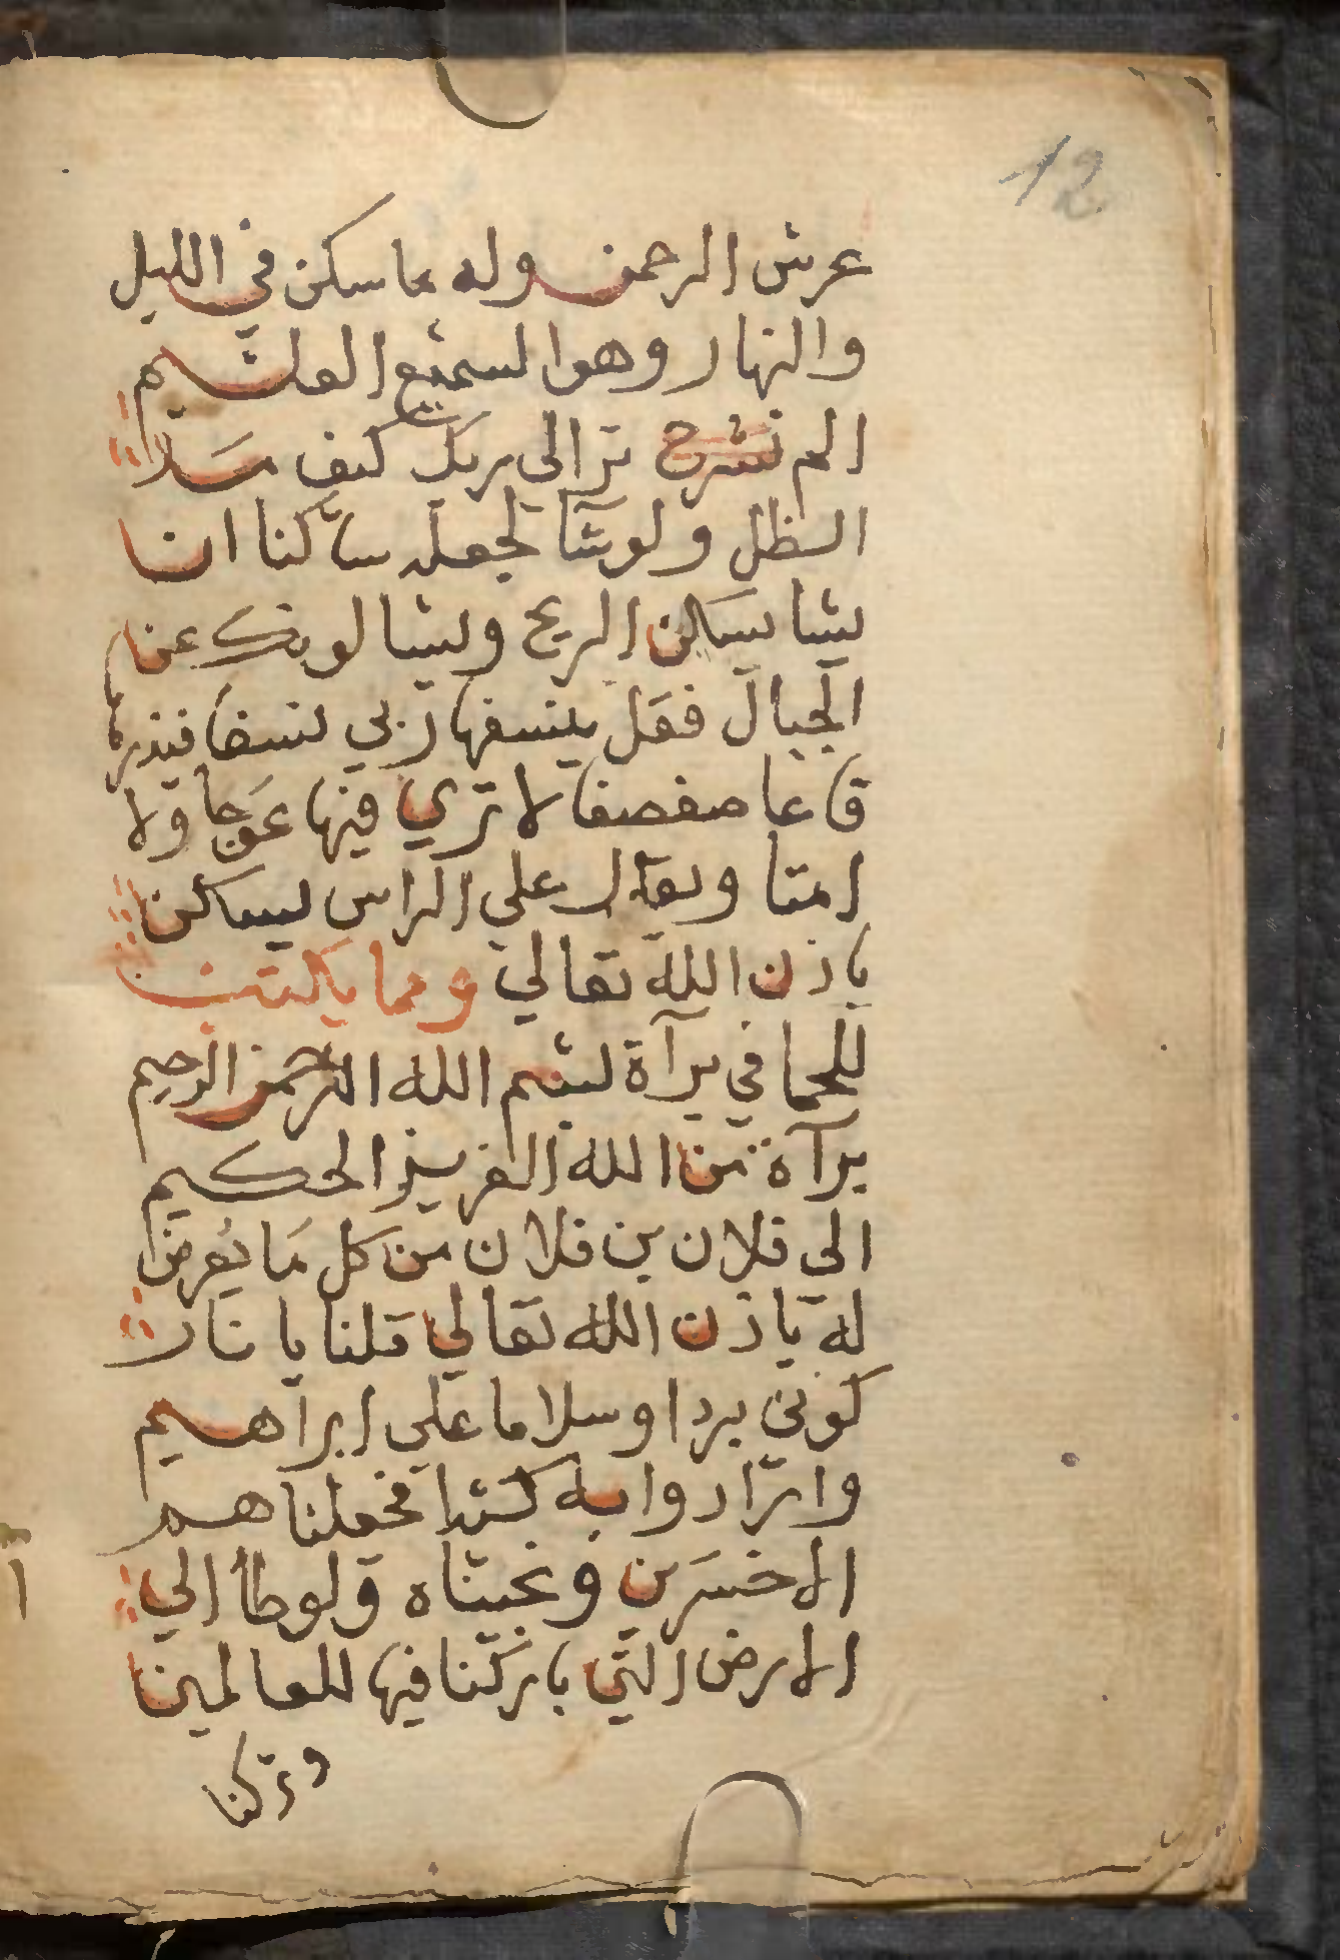 12
عرش الرحمن وله ما سكن في الليل
والنهار وهوا لسميع العليم
الم نشرح تر الي ربك كيف مد
الظل ولو شا لجعله ساكنا ان
يشا يسكن الريح ويسالونك عن
الجبال فقل ينسفها ربي نسفا فيذرها
قاعا صفصفا لا تري فيها عوجا ولا
امتا ويقال علي الراس ليسكن
باذن الله تعالي ومما يكتب
للحما في برآة لبسم الله الرحمن الرحيم
برآة من الله العزيز الحكيم
الي فلان بن فلان من كل ما يعرض
له باذن الله تعالي قلنا يا نار
كوني بردا وسلاما علي ابراهيم
وارادوا به كيدا فجعلناهم
الاخسرين ونجيناه ولوطا الي
الارض التي باركنا فيها للعالمين
وتركنا